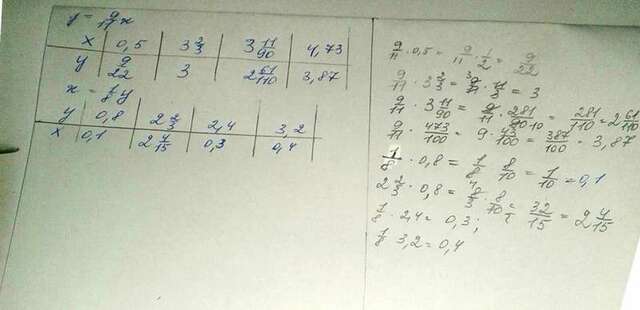 y = 9/11 x
x | 0,5 | 3 2/3 | 3 11/90 | 4,73
y | 9/22 | 3 | 2 61/110 | 3,87
x = 1/8 y
y | 0,8 | 2 2/3 | 2,4 | 3,2
x | 0,1 | 2 4/15 | 0,3 | 0,4
9/11 · 0,5 = 9/11 · 1/2 = 9/22
9/11 · 3 2/3 = 9/11 · 11/3 = 3
9/11 · 3 11/90 = 9/11 · 281/90 10 = 281/110 = 2 61/110
9/11 · 473/100 = 9 · 43/100 = 387/100 = 3,87
1/8 · 0,8 = 1/8 · 8/10 = 1/10 = 0,1
2 2/3 · 0,8 = 8/3 · 8/10 = 32/15 = 2 4/15
1/8 · 2,4 = 0,3;
1/8 3,2 = 0,4